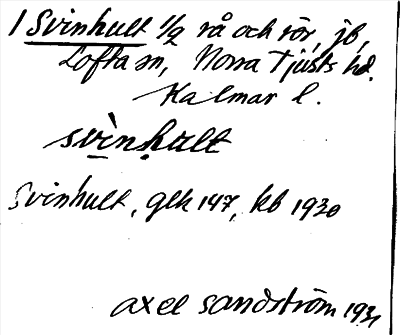 1 Svinhult 1/2 rå och rör, jb,
Lofta sn, Norra Tjusts hd.
Kalmar l.
svìnhult
Svinhult, glk 147, kb 1930
axel sandström 1931